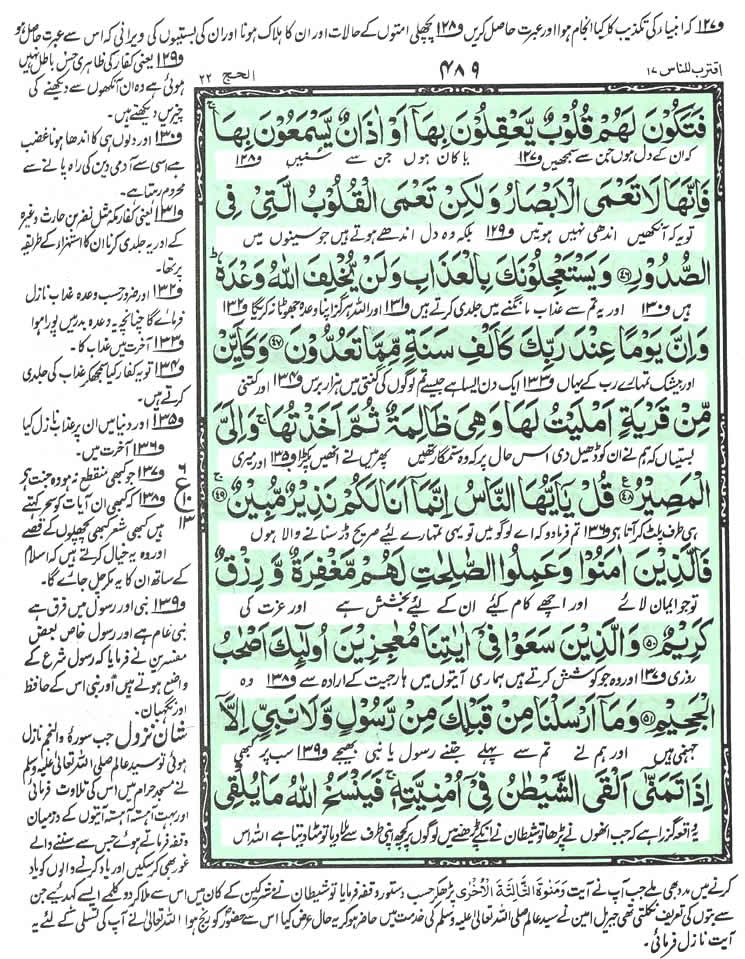 و۱۲۷ کہ انبیاء کی تکذیب کا کیا انجام ہوا اور عبرت حاصل کریں و۱۲۸ پچھلی امتوں کے حالات اور ان کا ہلاک ہونا اور ان کی بستیوں کی ویرانی کہ اس سے عبرت حاصل ہو
اقترب للناس ۱۷
۴۸۹
الحج ۲۲
فَتَكُوْنَ لَهُمْ قُلُوْبٌ يَّعْقِلُوْنَ بِهَاۤ اَوْ اٰذَانٌ يَّسْمَعُوْنَ بِهَا ۚ
کہ ان کے دل ہوں جن سے سمجھیں و۱۲۷ یا کان ہوں جن سے سنیں و۱۲۸
فَاِنَّهَا لَا تَعْمَى الْاَبْصَارُ وَلٰكِنْ تَعْمَى الْقُلُوْبُ الَّتِیْ فِی
تو یہ کہ آنکھیں اندھی نہیں ہوتیں و۱۲۹ بلکہ وہ دل اندھے ہوتے ہیں جو سینوں میں
الصُّدُوْرِ ﴿۴۶﴾ وَيَسْتَعْجِلُوْنَكَ بِالْعَذَابِ وَلَنْ يُّخْلِفَ اللّٰهُ وَعْدَهٗ ؕ
ہیں و۱۳۰ اور یہ تم سے عذاب مانگنے میں جلدی کرتے ہیں و۱۳۱ اور اللہ ہرگز اپنا وعدہ جھوٹا نہ کرے گا و۱۳۲
وَاِنَّ يَوْمًا عِنْدَ رَبِّكَ كَاَلْفِ سَنَةٍ مِّمَّا تَعُدُّوْنَ ﴿۴۷﴾ وَكَاَيِّنْ
اور بیشک تمہارے رب کے یہاں و۱۳۳ ایک دن ایسا ہے جیسے تم لوگوں کی گنتی میں ہزار برس و۱۳۴ اور کتنی
مِّنْ قَرْيَةٍ اَمْلَيْتُ لَهَا وَهِیَ ظَالِمَةٌ ثُمَّ اَخَذْتُهَا ۚ وَاِلَیَّ
بستیاں کہ ہم نے ان کو ڈھیل دی اس حال پر کہ وہ ستمگار تھیں پھر میں نے انھیں پکڑا و۱۳۵ اور میری
الْمَصِيْرُ ﴿۴۸﴾ قُلْ يٰۤاَيُّهَا النَّاسُ اِنَّمَاۤ اَنَا لَكُمْ نَذِيْرٌ مُّبِيْنٌ ﴿۴۹﴾
ہی طرف پلٹ کر آنا ہے و۱۳۶ تم فرما دو کہ اے لوگو میں تو یہی تمہارے لئے صریح ڈر سنانے والا ہوں
فَالَّذِيْنَ اٰمَنُوْا وَعَمِلُوا الصّٰلِحٰتِ لَهُمْ مَّغْفِرَةٌ وَّ رِزْقٌ
تو جو ایمان لائے اور اچھے کام کیے ان کے لیے بخشش ہے اور عزت کی
كَرِيْمٌ ﴿۵۰﴾ وَالَّذِيْنَ سَعَوْا فِیْۤ اٰيٰتِنَا مُعٰجِزِيْنَ اُولٰٓئِكَ اَصْحٰبُ
روزی و۱۳۷ اور وہ جو کوشش کرتے ہیں ہماری آیتوں میں ہار جیت کے ارادہ سے و۱۳۸ وہ
الْجَحِيْمِ ﴿۵۱﴾ وَمَاۤ اَرْسَلْنَا مِنْ قَبْلِكَ مِنْ رَّسُوْلٍ وَّلَا نَبِیٍّ اِلَّاۤ
جہنمی ہیں اور ہم نے تم سے پہلے جتنے رسول یا نبی بھیجے و۱۳۹ سب پر کبھی
اِذَا تَمَنّٰۤی اَلْقَی الشَّيْطٰنُ فِیْۤ اُمْنِيَّتِهٖ ۚ فَيَنْسَخُ اللّٰهُ مَا يُلْقِی
یہ واقعہ گزرا ہے کہ جب انھوں نے پڑھا تو شیطان نے انکے پڑھنے میں لوگوں پر کچھ اپنی طرف سے ملا دیا تو مٹا دیتا ہے اللہ اس
و۱۲۹ یعنی کفار کی ظاہری حس باطل نہیں
ہوئی ہے وہ ان آنکھوں سے دیکھنے کی
چیزیں دیکھتے ہیں۔
و۱۳۰ اور دلوں ہی کا اندھا ہونا غضب
ہے اسی سے آدمی دین کی راہ پانے سے
محروم رہتا ہے۔
و۱۳۱ یعنی کفار مکہ مثل نضر بن حارث وغیرہ
کے اور یہ جلدی کرنا ان کا استہزاء کے طریقہ
پر تھا۔
و۱۳۲ اور ضرور حسب وعدہ عذاب نازل
فرمائے گا چنانچہ یہ وعدہ بدر میں پورا ہوا
و۱۳۳ آخرت میں عذاب کا۔
و۱۳۴ تو یہ کفار کیا سمجھ کر عذاب کی جلدی
کرتے ہیں۔
و۱۳۵ اور دنیا میں ان پر عذاب نازل کیا
و۱۳۶ آخرت میں۔
و۱۳۷ جو کبھی منقطع نہ ہو وہ جنت ہے
و۱۳۸ کہ کبھی ان آیات کو سحر کہتے
ہیں کبھی شعر کبھی پچھلوں کے قصے
اور وہ یہ خیال کرتے ہیں کہ اسلام
کے ساتھ ان کا یہ مکر چل جائے گا۔
و۱۳۹ نبی اور رسول میں فرق ہے
نبی عام ہے اور رسول خاص بعض
مفسرین نے فرمایا کہ رسول شرع کے
واضع ہوتے ہیں اور نبی اس کے حافظ
اور نگہبان۔
شان نزول جب سورۂ والنجم نازل
ہوئی تو سید عالم صلی اللہ تعالیٰ علیہ وسلم
نے مسجد حرام میں اس کی تلاوت فرمائی
اور بہت آہستہ آہستہ آیتوں کے درمیان
وقفہ فرماتے ہوئے جس سے سننے والے
غور بھی کر سکیں اور یاد کرنے والوں کو یاد
۶
ع
۱۰
۱۳
کرنے میں مدد بھی ملے جب آپ نے آیت وَمَنٰوةَ الثَّالِثَةَ الْاُخْرٰی پڑھ کر حسب دستور وقفہ فرمایا تو شیطان نے مشرکین کے کان میں اس سے ملا کر دو کلمے ایسے کہہ دیئے جن
سے بتوں کی تعریف نکلتی تھی جبریل امین نے سید عالم صلی اللہ تعالیٰ علیہ وسلم کی خدمت میں حاضر ہو کر یہ حال عرض کیا اس سے حضور کو رنج ہوا اللہ تعالیٰ نے آپ کی تسلی کے لئے یہ
آیت نازل فرمائی۔